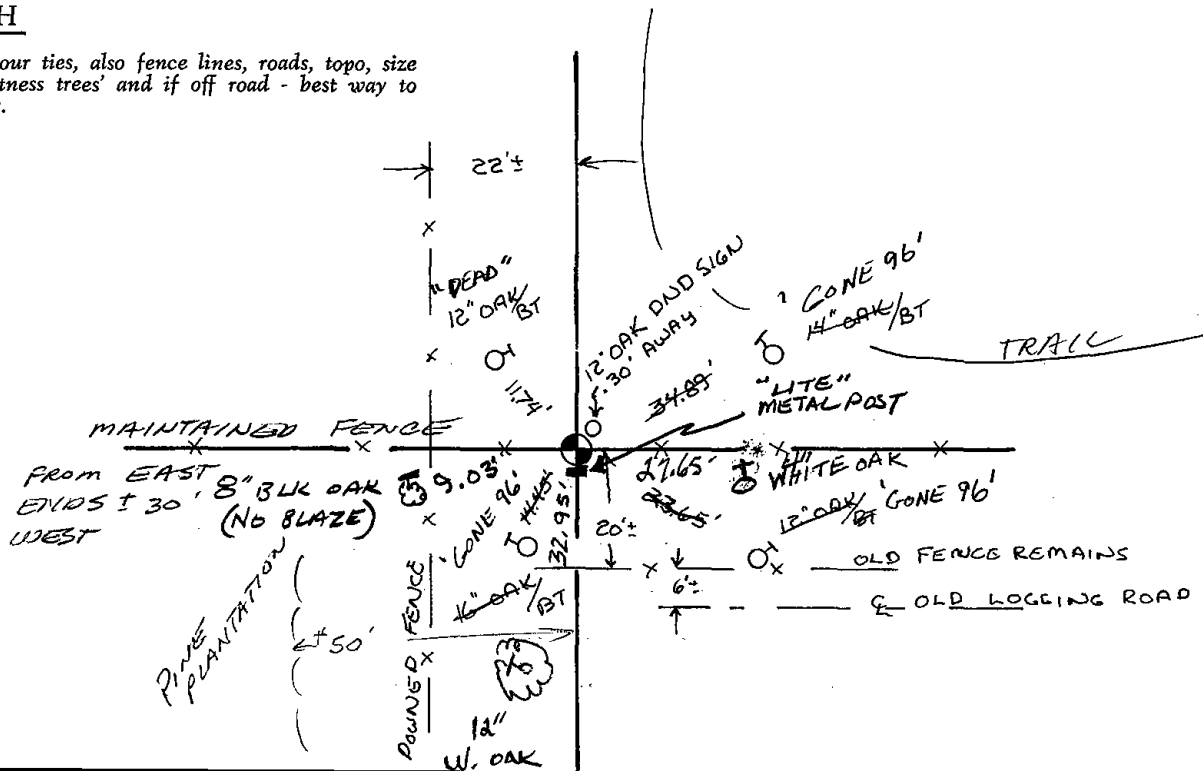 H
our ties, also fence lines, roads, topo, size
tness trees' and if off road - best way to
22'±
"DEAD"
12" OAK/BT
11.74'
12" OAK DND SIGN
.30' AWAY
' GONE 96'
14" OAK/BT
34.89'
TRAIL
"LITE"
METAL POST
MAINTAINED FENCE
FROM EAST
ENDS ± 30'
WEST
8" BLK OAK
(NO BLAZE)
9.03'
27.65'
WHITE OAK
23.65'
12" OAK/BT
'GONE 96'
'GONE 96'
14.45'
16" OAK/BT
32.95'
20'±
OLD FENCE REMAINS
6'±
℄ OLD LOGGING ROAD
PINE
PLANTATION
±50'
DOWNED FENCE
12"
W. OAK